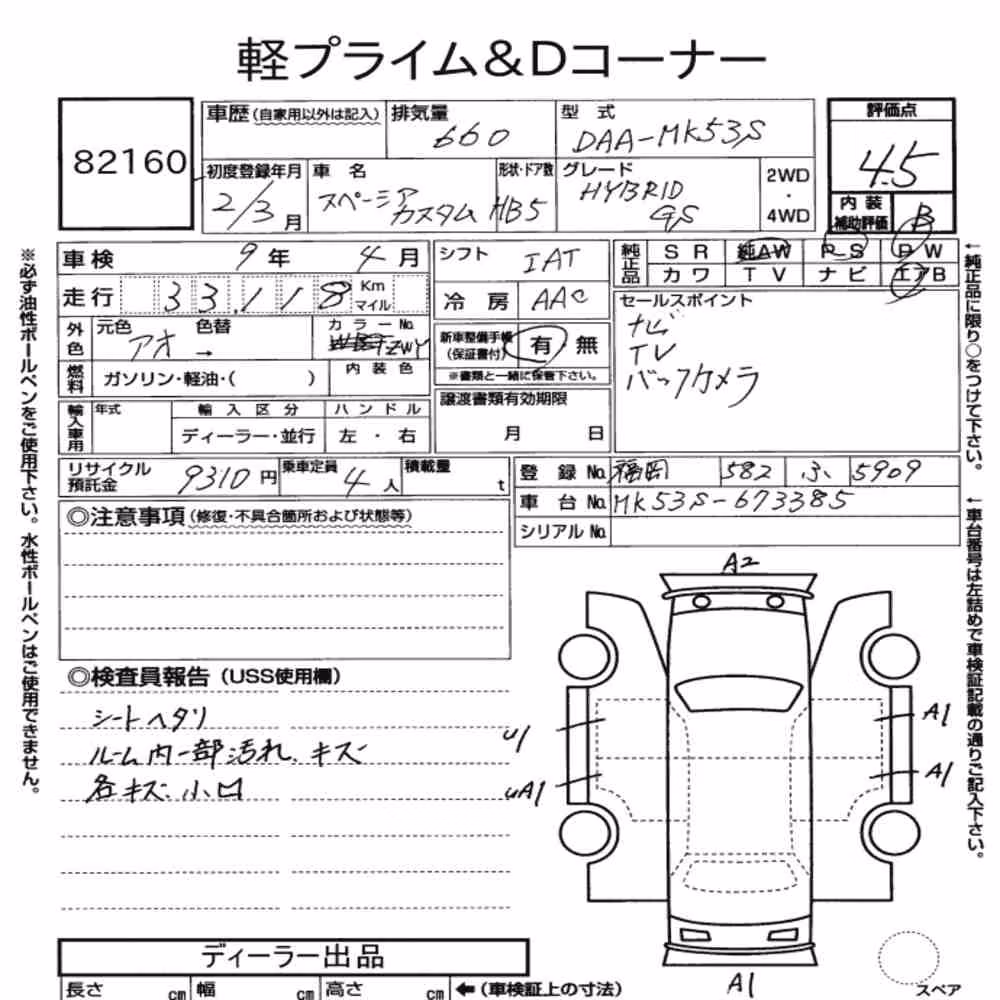 軽プライム&Dコーナー
82160
車歴(自家用以外は記入)
排気量
660
型式
DAA-MK53S
評価点
4.5
初度登録年月
2/3月
車名
スペーシア
カスタム
形状・ドア数
HB5
グレード
HYBRID
GS
2WD
・
4WD
内装
補助評価
B
車検 9年 4月
シフト IAT
純正品
SR 純AW PS PW
カワ TV ナビ エアB
走行 33,118 Km
マイル
冷房 AAC
セールスポイント
ナビ
TV
バックカメラ
外色
元色 色替
アオ →
カラーNo.
ZWY
新車整備手帳
(保証書付)
有 無
※書類と一緒に保管下さい。
燃料
ガソリン・軽油・( )
内装色
譲渡書類有効期限
月 日
輸入車用
年式
輸入区分
ハンドル
ディーラー・並行
左・右
リサイクル
預託金
9310円
乗車定員
4人
積載量
t
登録No. 福岡 582 ふ 5909
車台No. MK53S-673385
シリアルNo.
◎注意事項(修復・不具合箇所および状態等)
◎検査員報告(USS使用欄)
シートヘタリ
ルーム内一部汚れ、キズ
各キズ小凹
A2
U1
A1
UA1
A1
A1
スペア
ディーラー出品
長さ cm 幅 cm 高さ cm ←(車検証上の寸法)
※必ず油性ボールペンをご使用下さい。水性ボールペンはご使用できません。
←純正品に限り○をつけて下さい。
←車台番号は左詰めで車検証記載の通りご記入下さい。